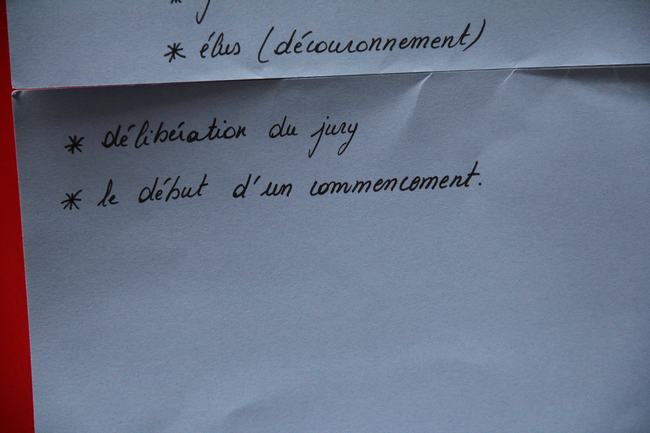 * élus (découronnement)
* délibération du jury
* le début d'un commencement.